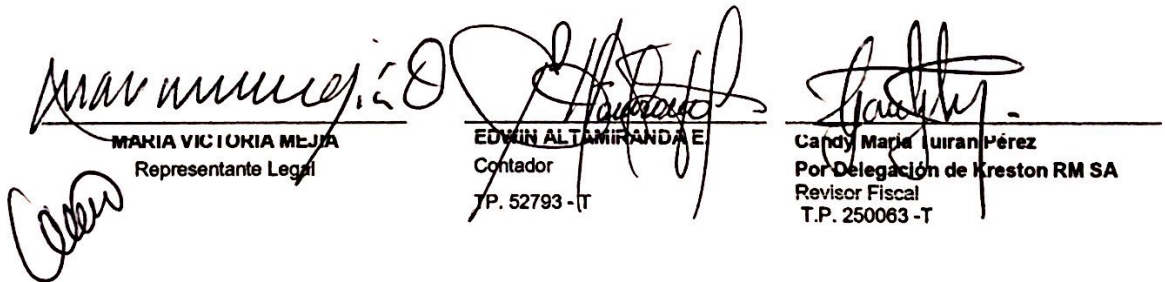 MARIA VICTORIA MEJIA
Representante Legal
EDWIN ALTAMIRANDA E.
Contador
TP. 52793 - T
Candy Maria Tuiran Pérez
Por Delegación de Kreston RM SA
Revisor Fiscal
T.P. 250063 -T